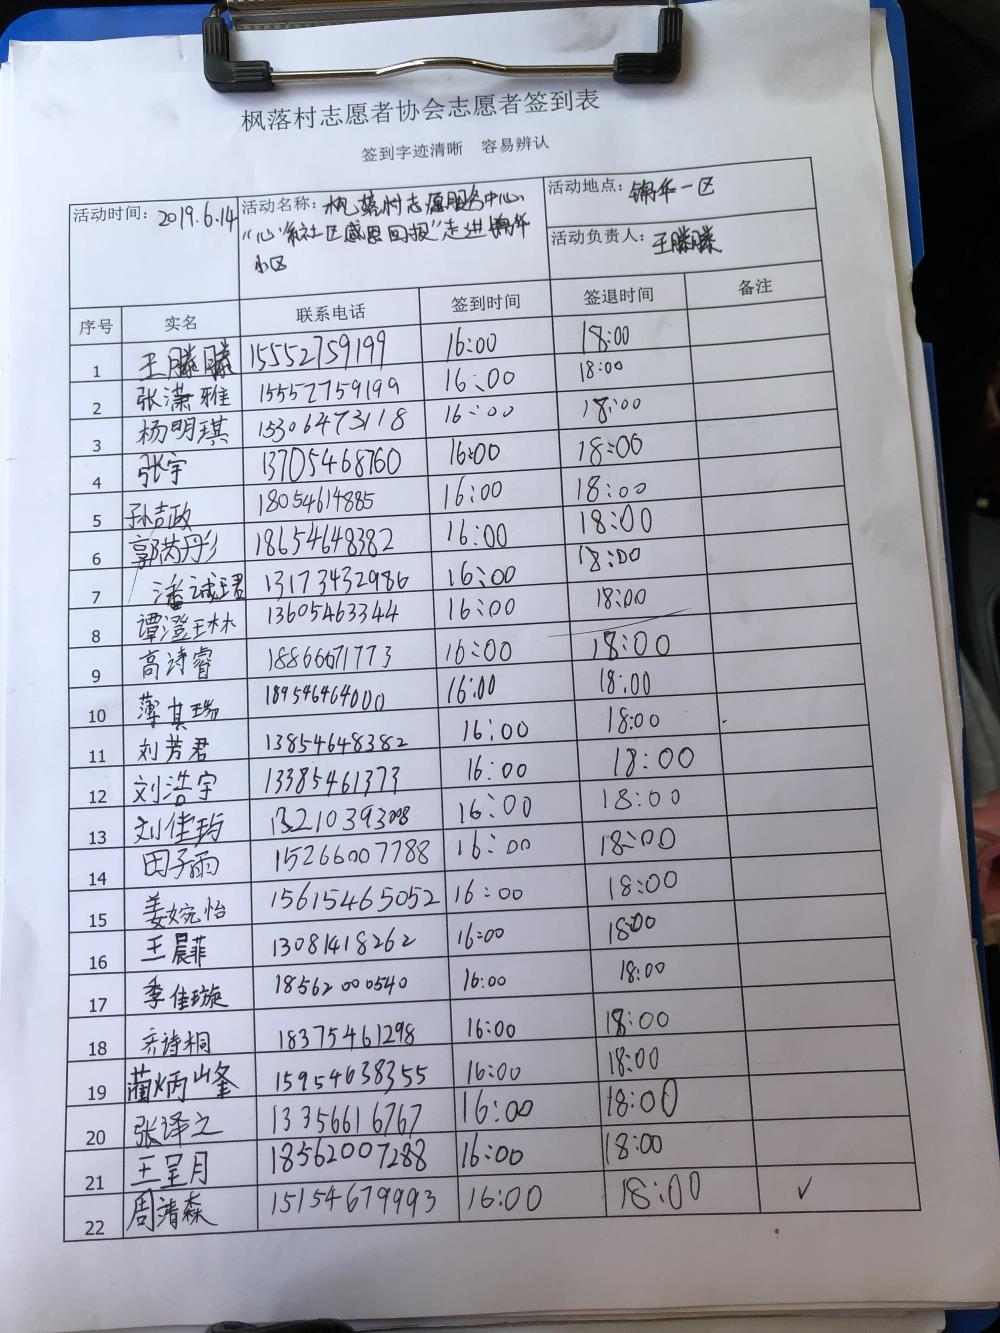 枫落村志愿者协会志愿者签到表
签到字迹清晰 容易辨认
活动时间：2019.6.14 活动名称：枫落村志愿服务中心、 活动地点：锦华一区
"心系社区感恩回报"走进锦华 活动负责人：王滕滕
小区
序号 实名 联系电话 签到时间 签退时间 备注
1 王滕滕 15552759199 16:00 18:00
2 张潇雅 15557759199 16:00 18:00
3 杨明琪 15306473118 16:00 18:00
4 张宇 13705468760 16:00 18:00
5 孙吉政 18054614885 16:00 18:00
6 郭芮彤 18654648382 16:00 18:00
7 潘诚珺 13173432986 16:00 18:00
8 谭澄琳 13605463344 16:00 18:00
9 高诗睿 18866671773 16:00 18:00
10 薄其瑞 18954646000 16:00 18:00
11 刘芳君 13854648382 16:00 18:00
12 刘浩宇 13385461373 16:00 18:00
13 刘佳 16:00 18:00
14 田子雨 15266007788 16:00 18:00
15 姜婉怡 15615465052 16:00 18:00
16 王晨菲 13081418262 16:00 18:00
17 季佳璇 18562000540 16:00 18:00
18 齐诗桐 18375461298 16:00 18:00
19 蔺炳峰 15954638355 16:00 18:00
20 张译之 13356616767 16:00 18:00
21 王呈月 18562007288 16:00 18:00
22 周靖森 15154679993 16:00 18:00 ✓